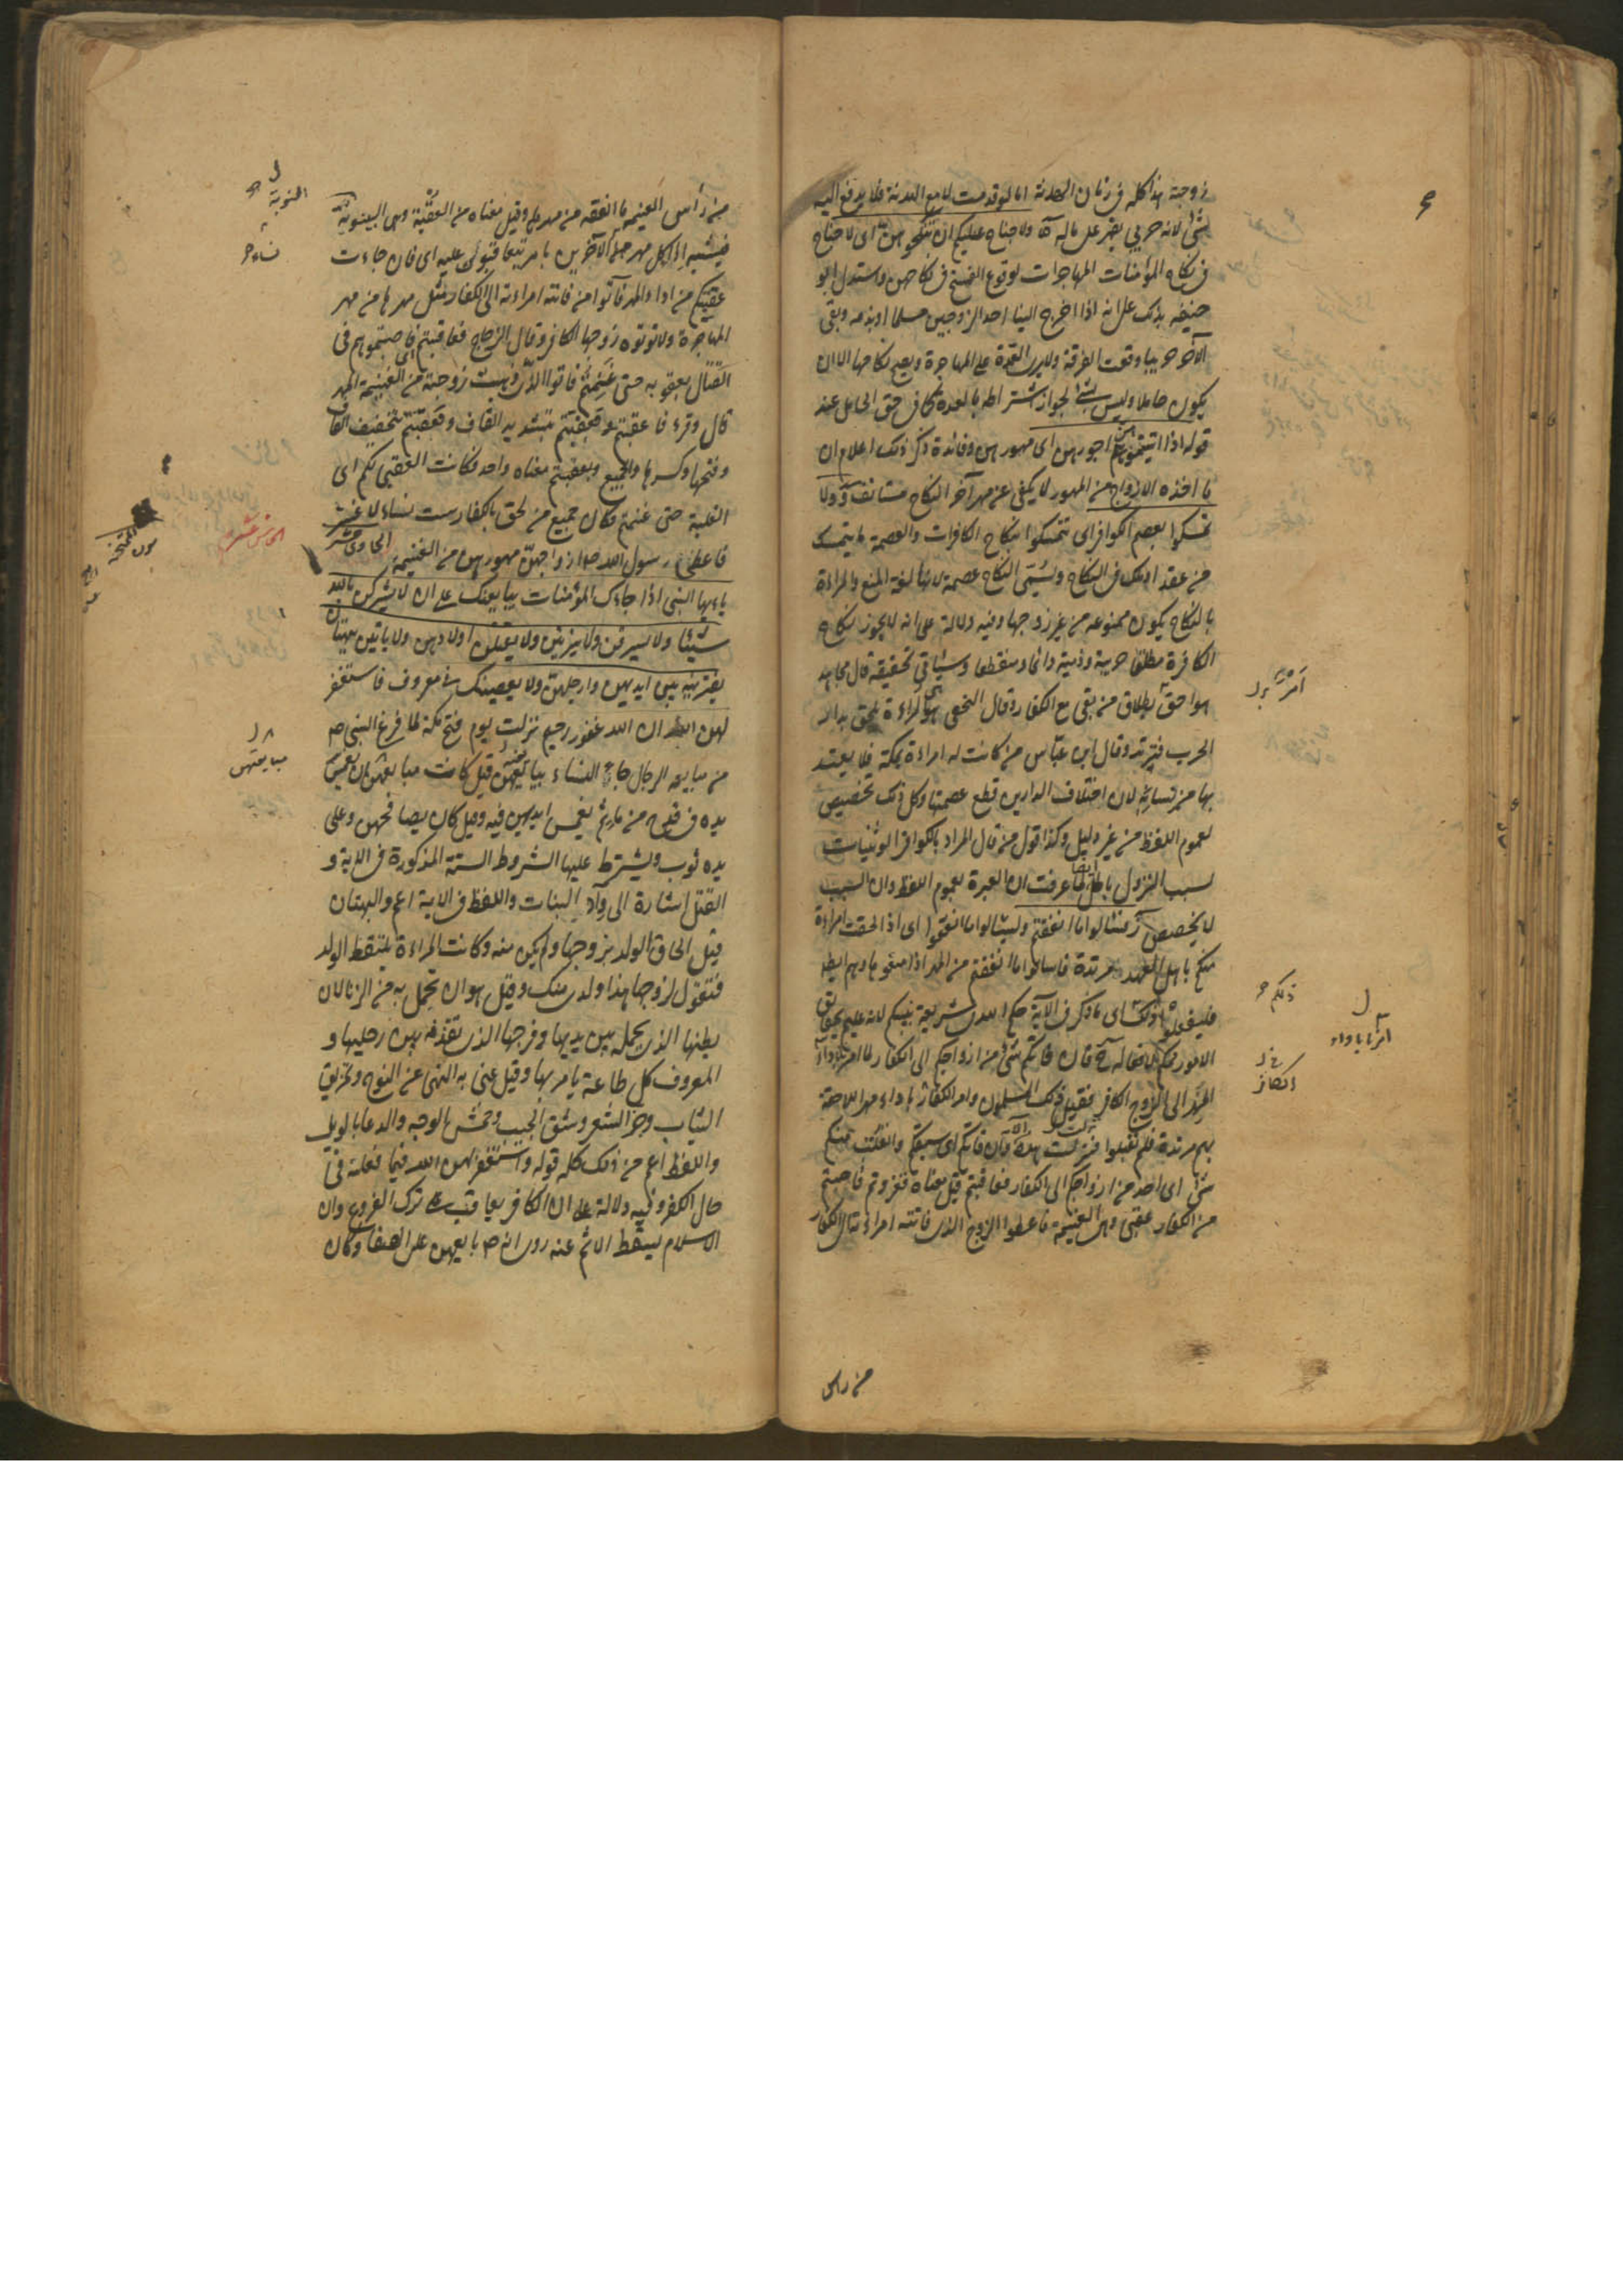 زوجته هذا كله فى زمان الهدنة اما لو قدمت لا مع الهدنة فلا يدفع اليه
شئ لانه حربى يقهر على ماله آه ولا جناح عليكم ان تنكحوهن اى لا جناح
فى نكاح المؤمنات المهاجرات لوقوع الفسخ فى نكاحهن واستدل ابو
حنيفه بذلك على انه اذا خرج الينا احد الزوجين مسلما او بذمه وبقى
الآخر حربيا وقعت الفرقة ولا يرى العدة على المهاجرة ويصح نكاحها الا ان
يكون حاملا وليس بشئ لجواز اشتراطه بالعدة كما فى حق الحامل عند
قوله اذا اتيتموهن اجورهن اى مهورهن وفائدة ذكر ذلك اعلام ان
ما اخذه الازواج من المهور لا يكفى عن مهر آخر النكاح مستانف ة ولا
تمسكوا بعصم الكوافر اى تتمسكوا بنكاح الكافرات والعصمة ما يتمسك
من عقد او ملك فى النكاح ويسمى النكاح عصمة لانها لغة المنع والمراءة
بالنكاح يكون ممنوعه من غير زوجها وفيه دلالة على انه لا يجوز نكاح
الكافرة مطلقا حربية وذمية دائما ومنقطعا وسيأتى تحقيقه قال مجاهد
هو احق بطلاق من بقى مع الكفار وقال النخعى هى المراءة تلحق بدار
الحرب فترتد وقال ابن عباس من كانت له امراءة بمكة فلا يعتد
بها من نسائه لان اختلاف الدارين قطع عصمتها وكل ذلك تخصيص
لعموم اللفظ من غير دليل وكذا قول من قال المراد بالكوافر الوثنيات
لسبب النزول باطل ايضا لما عرفت ان العبرة بعموم اللفظ وان السبب
لا يخصص ز واسئلوا ما انفقتم وليسئلوا ما انفقوا اى اذا لحقت امراءة
منكم باهل العهد مرتدة فاسالوا ما انفقتم من المهر اذا منعوها وهم ايضا
فليفعلوا ذلك اى ما ذكر فى الآية حكم الله شريعة بينكم لانه عليم بحقايق
الامور حكيم لافعاله ح قال فاتكم شئ من ازواجكم الى الكفار لما امر باداء
المهر الى الزوج الكافر فقبل ذلك المسلمون وامر الكفار باداء مهر اللاحقة
بهم مرتدة فلم يقبلوا فنزلت هذه الآية وان فاتكم اى سبقكم وانفلت منكم
شئ اى احد من ازواجكم الى الكفار فعاقبتم قيل معناه فغزوتم فاصبتم
من الكفار عقبى وهى الغنيمة فاعطوا الزوج الذى فاتته امراءته الى الكفار
من راس
ذلكم
الكافر
من رأس الغنيمه ما انفقه من مهرها وقيل معناه من العقبة وهى النوبة
فشبه اداء كل مهر الآخرين بامر يتعاقبون عليه اى فان جاءت
عقبتكم من اداء المهر فآتوا من فاتته امراءته الى الكفار مثل مهرها من مهر
المهاجرة ولا توتوه زوجها الكافر وقال الزجاج فعاقبتم اى اصبتموهم فى
القتال بعقوبه حتى غنمتم فاتوا الذى ذهبت زوجته من الغنيمة المهر
قال وقرء فاعقبتم وفعقبتم بتشديد القاف وفعقبتم بتخفيف القاف
وفتحها وكسرها والجميع معناه واحد فكانت العقبى لكم اى
الغلبة حتى غنمتم فكان جميع من لحق بالكفار ست نساء لا غير
فاعطى رسول الله ص ازواجهن مهورهن من الغنيمه الحادى عشر
ياءيها النبى اذا جاءك المؤمنات يبايعنك على ان لا يشركن بالله
شيئا ولا يسرقن ولا يزنين ولا يقتلن اولادهن ولا ياتين ببهتان
يفترينه بين ايديهن وارجلهن ولا يعصينك فى معروف فاستغفر
لهن الله ان الله غفور رحيم نزلت يوم فتح مكة لما فرغ النبى ص
من مبايعه الرجال جاء النساء يبايعنه قيل كانت مبايعتهن بان يغمس
يده فى قدح من ماء ثم يغمس ايديهن فيه وقيل كان يصافحهن وعلى
يده ثوب ويشترط عليها الشروط الستة المذكورة فى الاية و
القتل اشارة الى وأد البنات واللفظ فى الاية اعم والبهتان
قيل الحاق الولد بزوجها ولم يكن منه وكانت المراءة تلتقط الولد
فتقول لزوجها هذا ولدى منك وقيل هو ان تحمل به من الزنا لان
بطنها الذى يحمله بين يديها وفرجها الذى تقذفه بين رجليها و
المعروف كل طاعة يامر بها وقيل عنى به النهى عن النوح وتمزيق
الثياب وجز الشعر وشق الجيب وخمش الوجه والدعا بالويل
واللفظ اعم من ذلك كله قوله واستغفر لهن الله فيما فعلنه فى
حال الكفر وفيه دلالة على ان الكافر يعاقب على ترك الفروع وان
الاسلام يسقط الاثم عنه روى انه ص بايعهن على الصفا وكان
النوبة
نساء
مبايعتهن
سورة الممتحنه